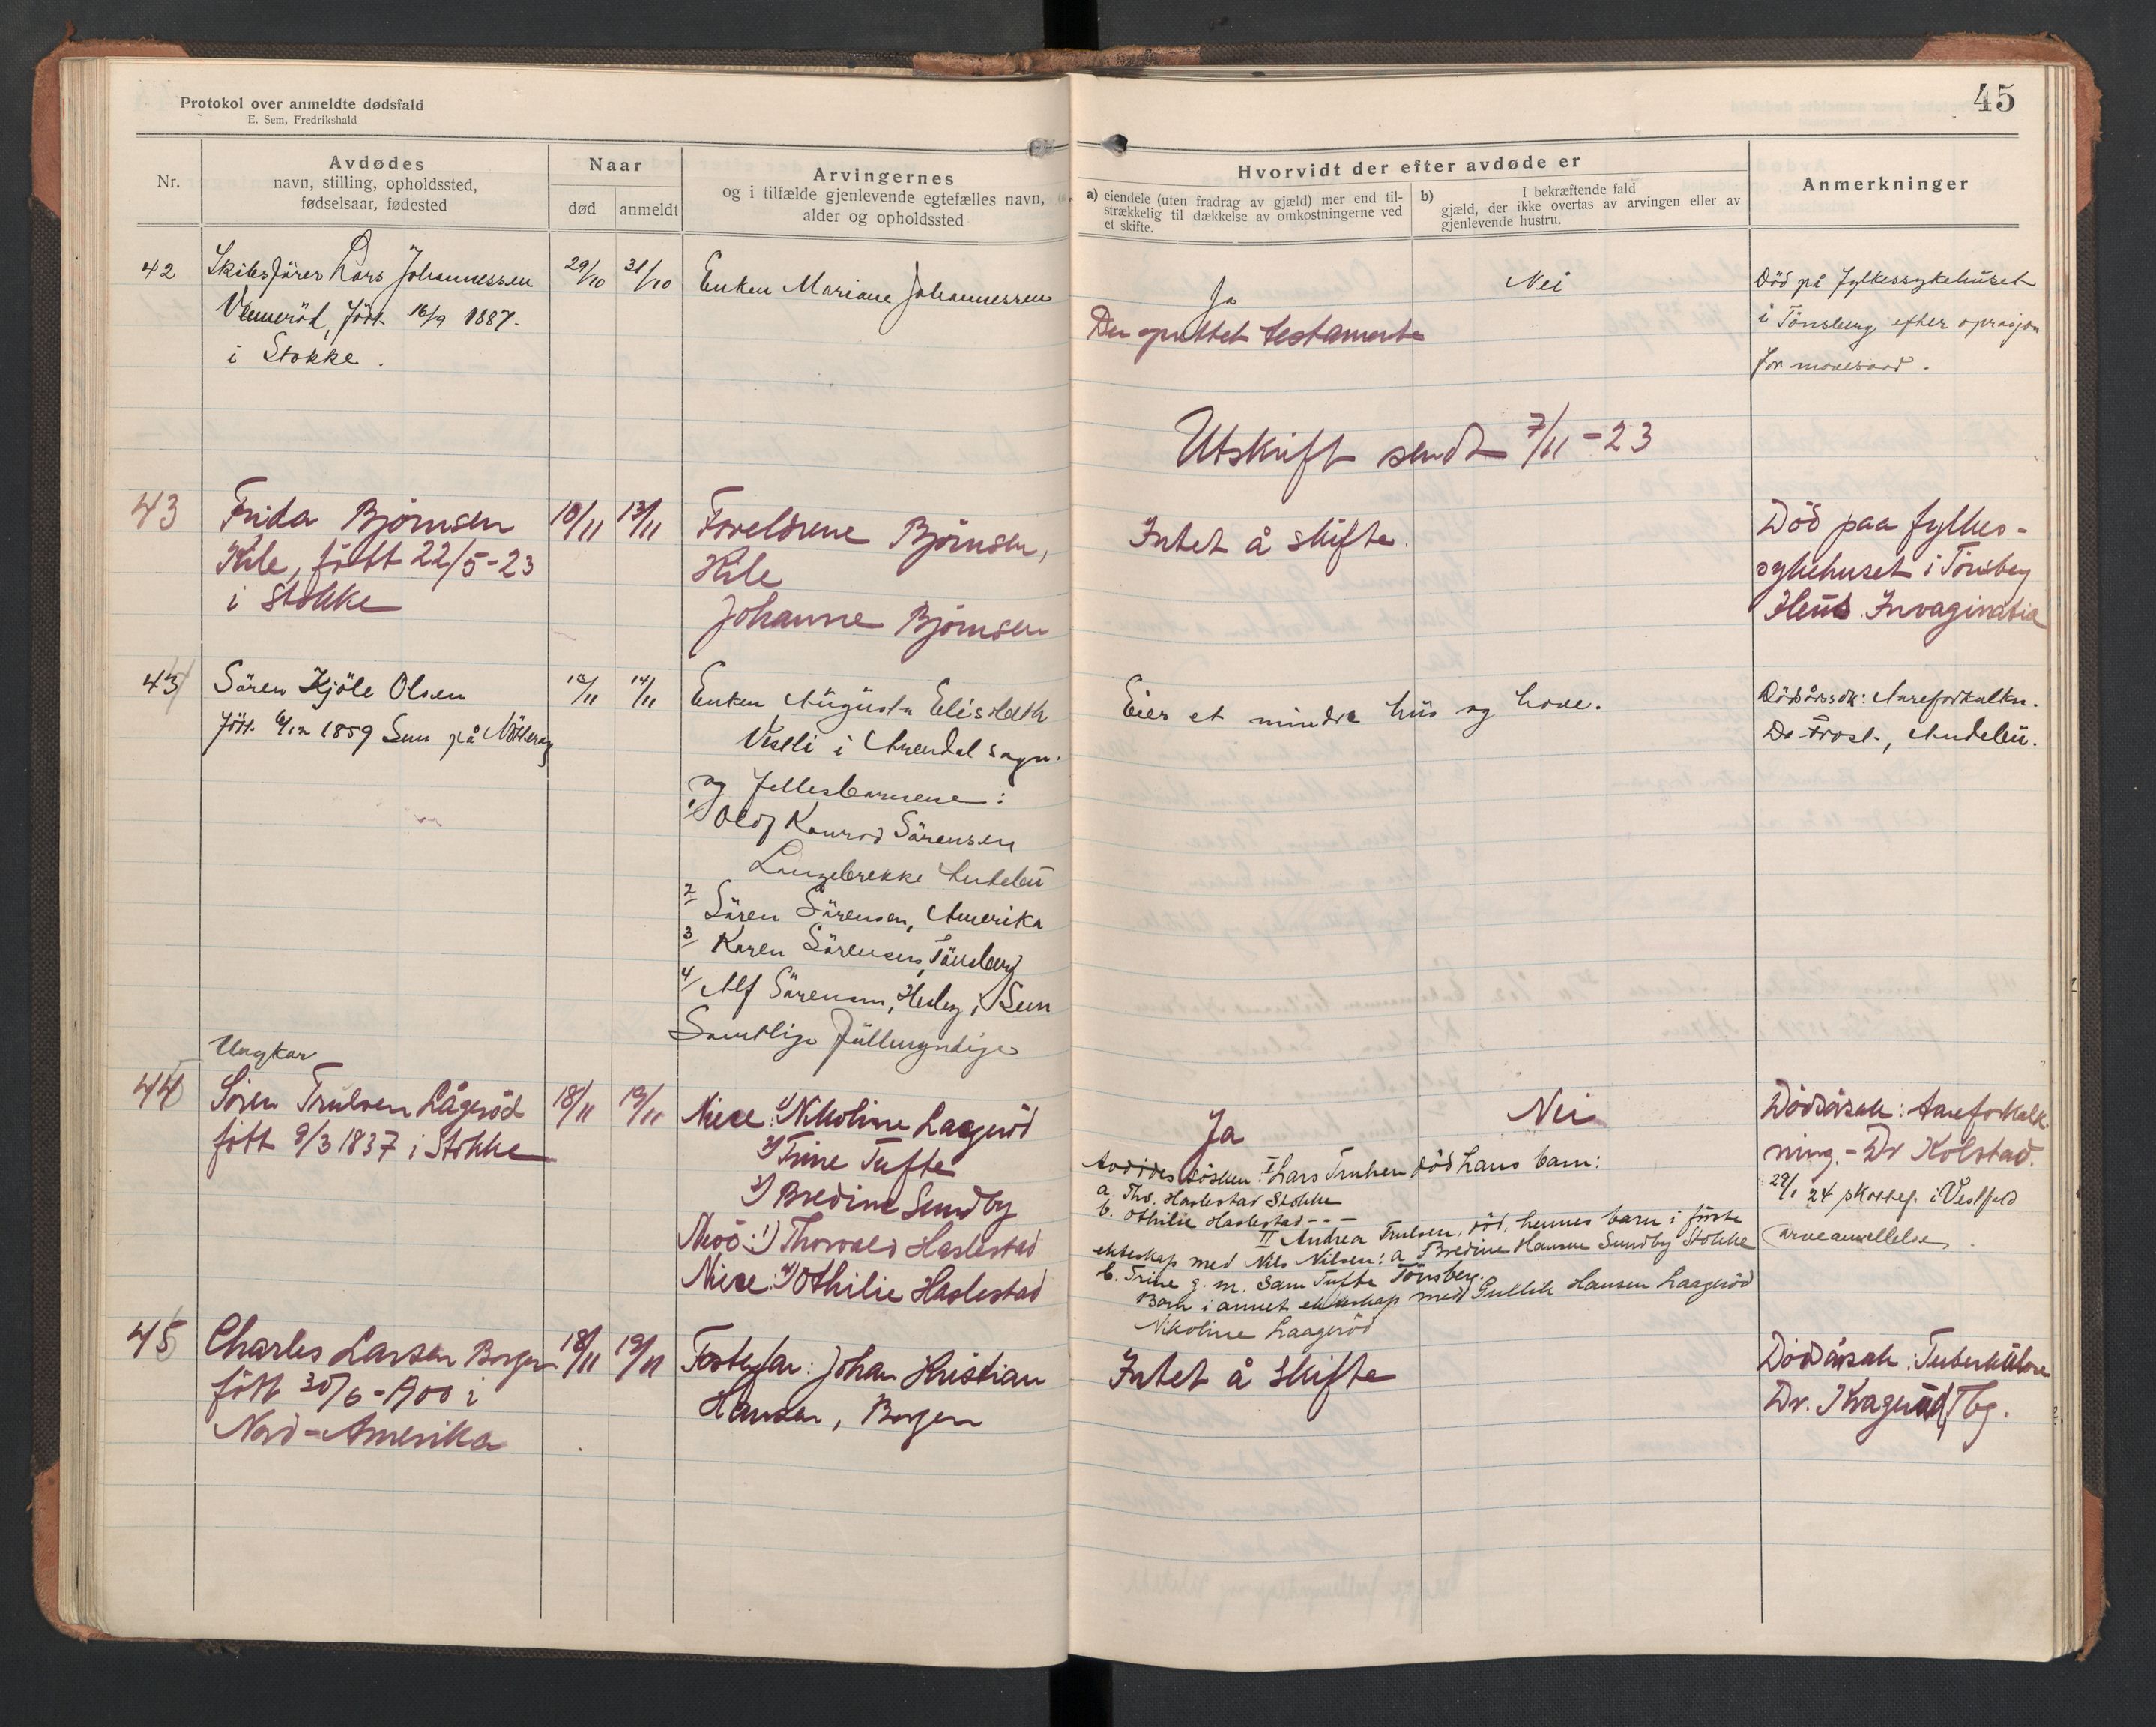 Protokol over anmeldte dødsfald
E. Sem, Fredrikshald
45
Nr.
Avdødes
navn, stilling, opholdssted,
fødselsaar, fødested
Naar
død
anmeldt
Arvingernes
og i tilfælde gjenlevende egtefælles navn,
alder og opholdssted
Hvorvidt der efter avdøde er
a) eiendele (uten fradrag av gjæld) mer end til-
strækkelig til dækkelse av omkostningerne ved
et skifte.
b) I bekræftende fald
gjæld, der ikke overtas av arvingen eller av
gjenlevende hustru.
Anmerkninger
42
Skibsförer Lars Johannessen
Vennerød, født 16/9 1887.
i Stokke.
29/10
31/10
Enken Mariane Johannessen
Ja
Der oprettet testamente
Nei
Död på fylkessykehuset
i Tönsberg efter oprasjon
for mavesaar.
Utskrift sendt 7/11-23
43
Frida Bjørnsen
Hile, født 22/5-23
i Stokke
10/11
13/11
Foreldrene Bjørnsen,
Hile
Johanne Bjørnsen
Intet å skifte.
Død paa fylkes-
sykehuset i Tönsberg
Ileus Invaginatia
43
Sören Kjöle Olsen
födt 6/12 1859 Sem på Nötteröy
14/11
Enken Augusta Elisabeth
Vestli i Arendal sogn.
og fellesbarnene:
1/ Olaf Konrad Sörensen
Langebrekke Andebu
2/ Sören Sörensen, Amerika
3/ Karen Sörensen, Tönsberg
4/ Alf Sörensen, Hesby i Sem
Samtlige fullmyndige
Eier et mindre hus og have.
Dödsårsak: Aareforkalkn.
Dr Frost, Andebu.
44
Ungkar
Søren Trulsen Lågerød
født 9/3 1837 i Stokke
18/11
19/11
Niese: 1) Nikoline Laagerød
2) Trine Tufte
3) Bredine Sundby
Nevö: 1) Thorvald Haslestad
Niese: 4) Othilie Haslestad
Ja
Nei
Avdödes sösken: I Lars Trulsen död hans barn:
a. Thv. Haslestad Stokke
b. Othilie Haslestad - - -
II Andrea Trulsen, död, hennes barn i förste
ekteskap med Nils Nilsen: a Bredine Hansen Sundby Stokke
b. Trine g. m. Sam Tufte Tönsberg.
Barn i annet ekteskap med Gullik Hansen Laagerød
Nikoline Laagerød
Dødsårsak: Aareforkalk-
ning. - Dr Kolstad.
29/1 24 skattef. i Vestfold
arveanmeldelse.
45
Charles Larsen Borgen
født 30/6-1900 i
Nord-Amerika
18/11
19/11
Fosterfar: Johan Kristian
Hansen, Borgen
Intet å skifte
Dødsårsak: Tuberkulose
Dr. Kragerud, Tbg.